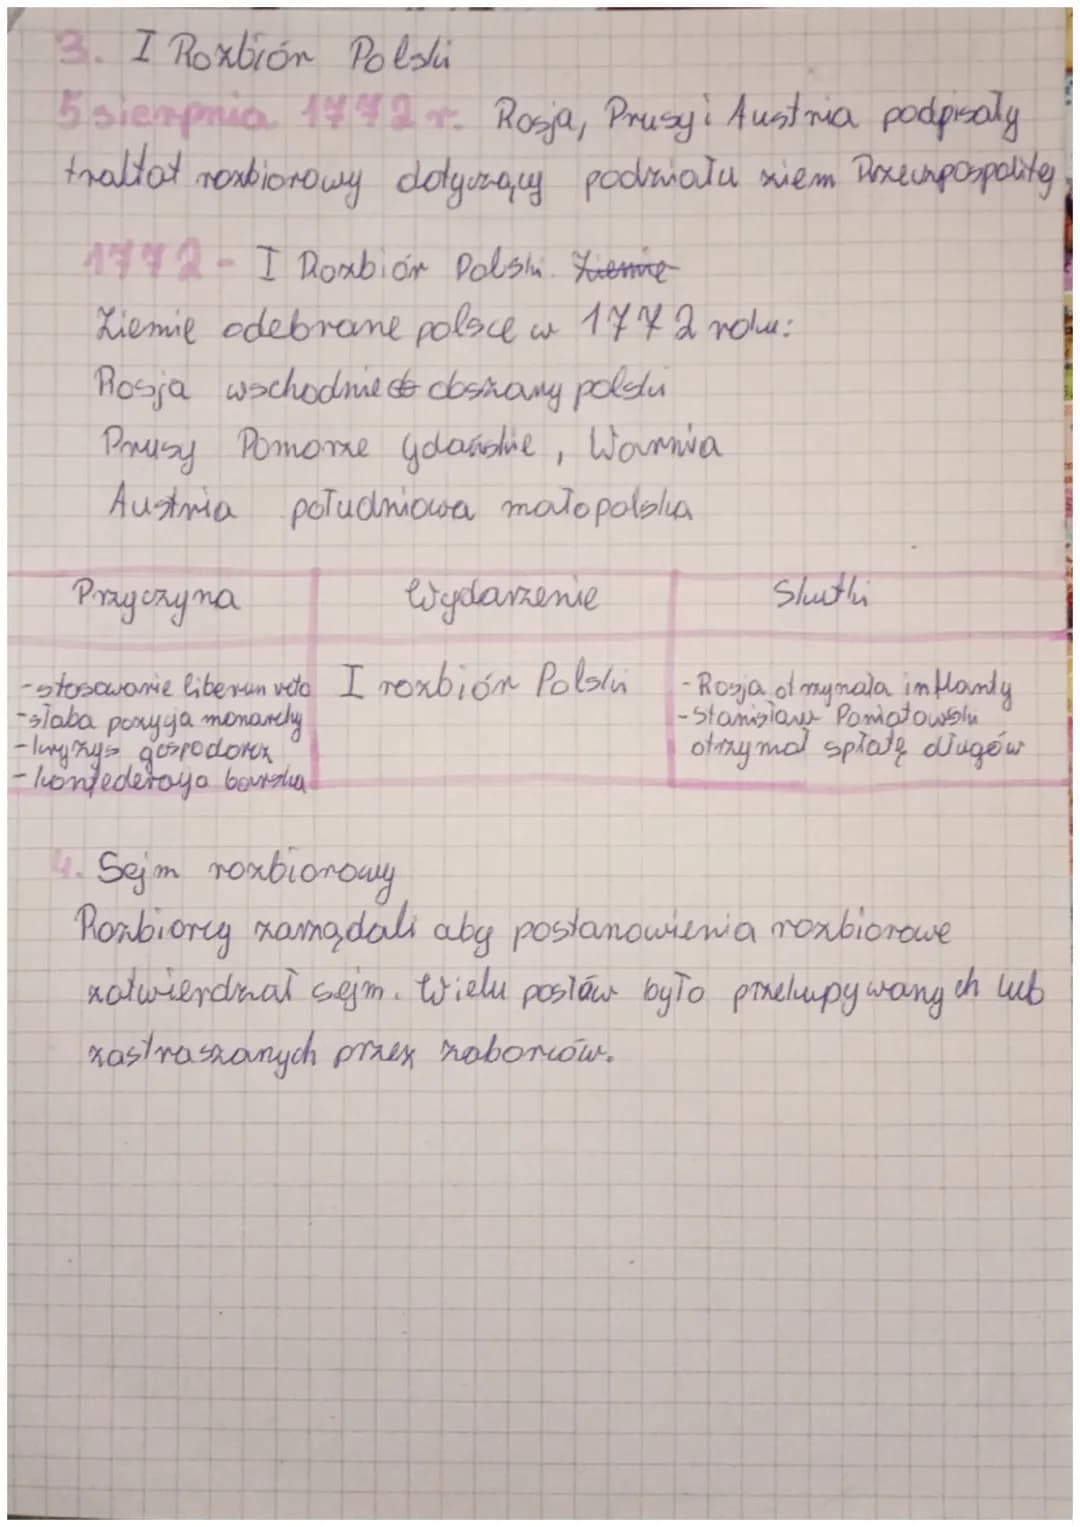 3. I Rozbiór Polski
5 sierpnia 1772 r. Rosja, Prusy i Austria podpisały
traktat rozbiorowy dotyczący podziału ziem Rzeczpospolitej
1772 - I Rozbiór Polski. Ziemie
Ziemie odebrane polsce w 1772 roku:
Rosja wschodnie obszary polski
Prusy Pomorze Gdańskie, Warmia
Austria południowa małopolska
Przyczyna Wydarzenie Skutki
-stosowanie liberun veto I rozbiór Polski -Rosja otrzymała inflanty
-słaba pozycja monarchy -Stanisław Poniatowski
-kryzys gospodarcz otrzymał spłatę długów
-konfederacja barska
4. Sejm rozbiorowy
Rozbiorcy zarządali aby postanowienia rozbiorowe
zatwierdzał sejm. Wielu posłów było przekupywanych lub
zastraszanych przez zaborców.